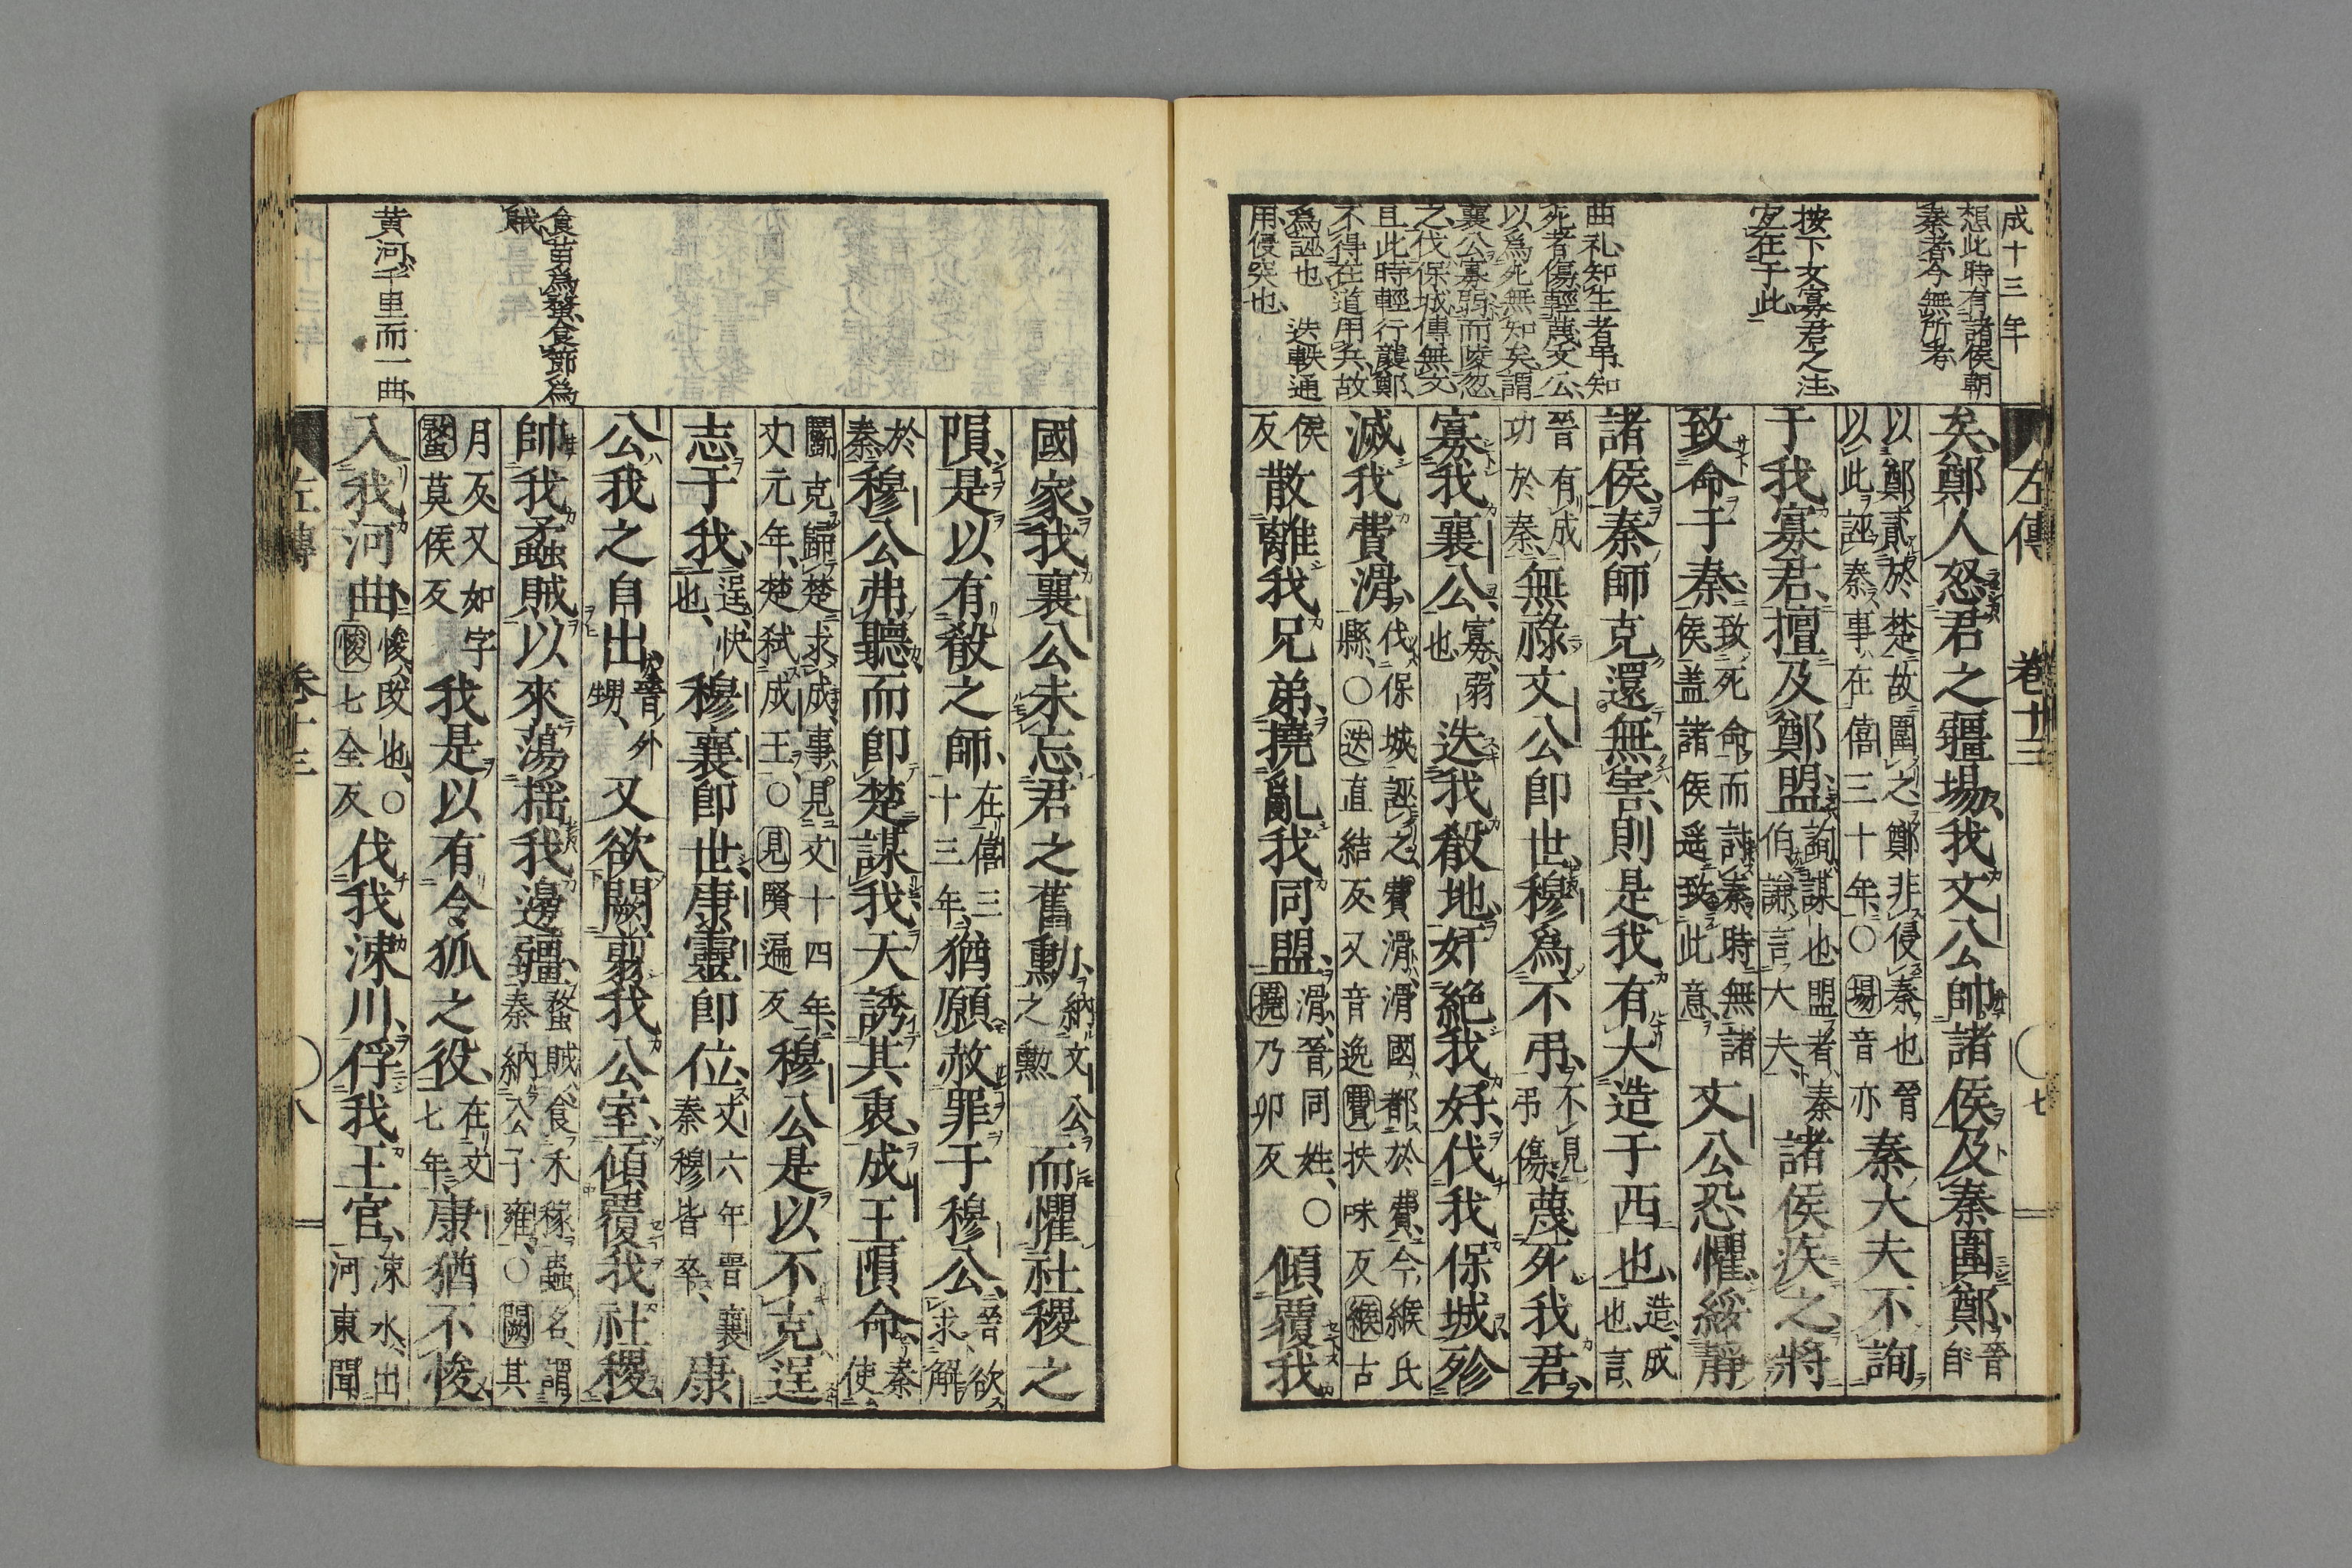 成十三年
左傳　卷十三　七
想此時有諸侯朝
秦者今無所考
按下文寡君之注
宐在于此
曲礼知生者弔知
死者傷輕蔑文公
以爲死無知矣謂
襄公寡弱而陵忽
之伐保城傳無文
且此時輕行襲鄭
不得在道用兵故
爲誣也　迭軼通
用侵突也
矣鄭人怒君之疆埸我文公帥諸侯及秦圍鄭晉自
以鄭貳於楚故圍之鄭非侵秦也晉以此誣秦事在僖三十年○埸音亦秦大夫不詢
于我寡君擅及鄭盟詢謀也盟者秦伯謙言大夫諸侯疾之將
致命于秦致死命而討秦時無諸侯盖諸侯遥致此意文公恐懼綏靜
諸侯秦師克還無害則是我有大造于西也造成也言
晉有成功於秦無祿文公即世穆爲不弔不見弔傷蔑死我君
寡我襄公寡弱也迭我殽地奸絶我好伐我保城殄
滅我費滑伐保城誣之費滑滑國都於費今緱氏縣○迭直結反又音逸費扶味反緱古
侯反散離我兄弟撓亂我同盟滑晉同姓○撓乃卯反傾覆我
食苗爲蟊食節爲
賊
黄河千里而一曲
國家我襄公未忘君之舊勳納文公之勲而懼社稷之
隕是以有殽之師在僖三十三年猶願赦罪于穆公晉欲求解
於秦穆公弗聽而即楚謀我天誘其衷成王隕命秦使
鬭克歸楚求成事見文十四年文元年楚弒成王○見賢遍反穆公是以不克逞
志于我逞快也穆襄即世康靈即位文六年晉襄秦穆皆卒康
公我之自出晉外甥又欲闕翦我公室傾覆我社稷
帥我蟊賊以來蕩搖我邊疆蟊賊食禾稼蟲名謂秦納公子雍○闕其
月反又如字蟊莫侯反我是以有令狐之役在文七年康猶不悛
入我河曲悛改也○悛七全反伐我涑川俘我王官涑水出河東聞
左傳　卷十三　八